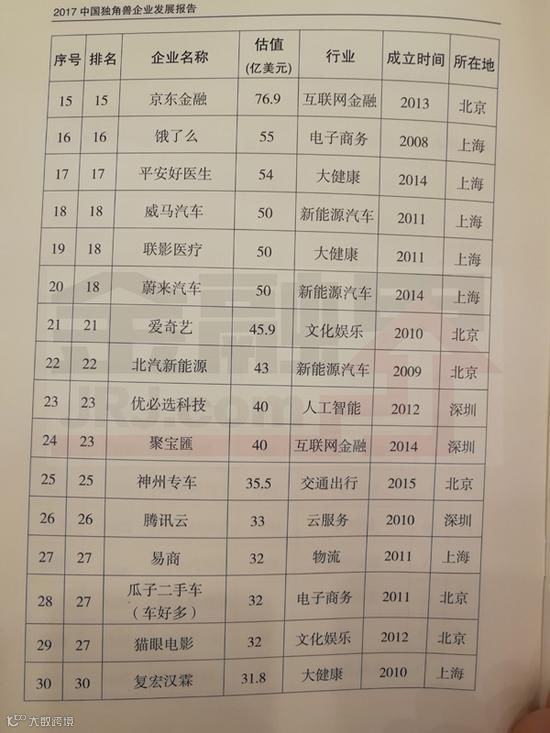 2017 中国独角兽企业发展报告
序号 排名 企业名称 估值 (亿美元) 行业 成立时间 所在地
15 15 京东金融 76.9 互联网金融 2013 北京
16 16 饿了么 55 电子商务 2008 上海
17 17 平安好医生 54 大健康 2014 上海
18 18 威马汽车 50 新能源汽车 2011 上海
19 18 联影医疗 50 大健康 2011 上海
20 18 蔚来汽车 50 新能源汽车 2014 上海
21 21 爱奇艺 45.9 文化娱乐 2010 北京
22 22 北汽新能源 43 新能源汽车 2009 北京
23 23 优必选科技 40 人工智能 2012 深圳
24 23 聚宝匯 40 互联网金融 2014 深圳
25 25 神州专车 35.5 交通出行 2015 北京
26 26 腾讯云 33 云服务 2010 深圳
27 27 易商 32 物流 2011 上海
28 27 瓜子二手车 (车好多) 32 电子商务 2011 北京
29 27 猫眼电影 32 文化娱乐 2012 北京
30 30 复宏汉霖 31.8 大健康 2010 上海
金融界
JRJ.com
大数跨境